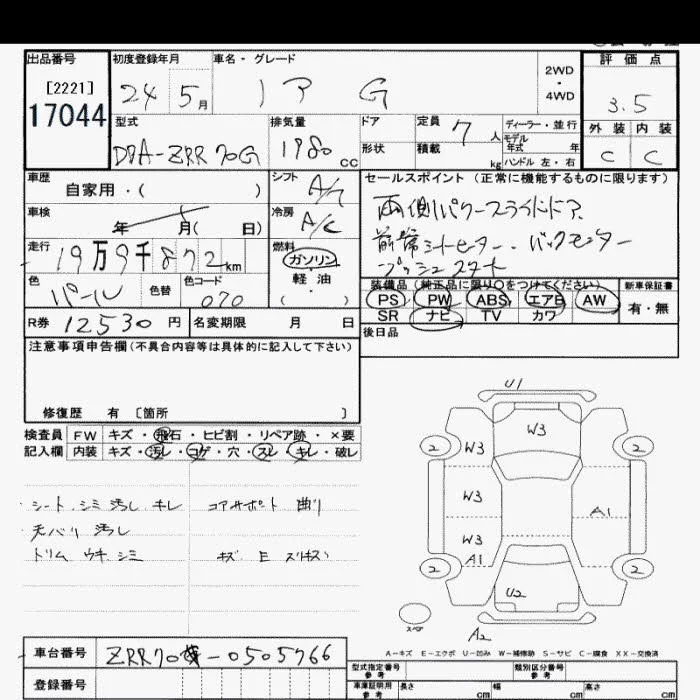 出品番号 初度登録年月 車名・グレード 2WD・4WD 評価点
[2221] 24 5月 ノア G 3.5
17044
型式 排気量 ドア 定員 7人 ディーラー・並行 外装 内装
DBA-ZRR70G 1980cc 形状 積載 kg モデル年式 年 C C
ハンドル 左・右
車歴 自家用・( ) シフト A/T セールスポイント(正常に機能するものに限ります)
車検 年 月( 日) 冷房 A/C 両側パワースライドドア
走行 19万9千872km 燃料 ガソリン・軽油・( ) 前席シートヒーター．バックモニター
プッシュスタート
色 パール 色替 色コード 070 装備品(純正品に限り○をつけてください) 新車保証書
PS PW ABS エアB AW 有・無
R券 12530円 名変期限 月 日 SR ナビ TV カワ
後日品
注意事項申告欄(不具合内容等は具体的に記入して下さい)
修復歴 有 [箇所 ]
検査員 FW キズ・飛石・ヒビ割・リペア跡・×要
記入欄 内装 キズ・汚レ・コゲ・穴・スレ・キレ・破レ
シート．シミ 汚レ キレ コアサポート 曲り
天バリ 汚レ
トリム ウキ シミ キズ E スリキズ
U1
W3
2 W3 2
W3 A1
W3
A1
2 2
U2
スペア
A2
A-キズ E-エクボ U-凹み W-補修跡 S-サビ C-腐食 XX-交換済
車台番号 ZRR70-0505766 型式指定番号 参考 類別区分番号 参考
登録番号 車庫証明用 参考 長さ cm 幅 cm 高さ cm